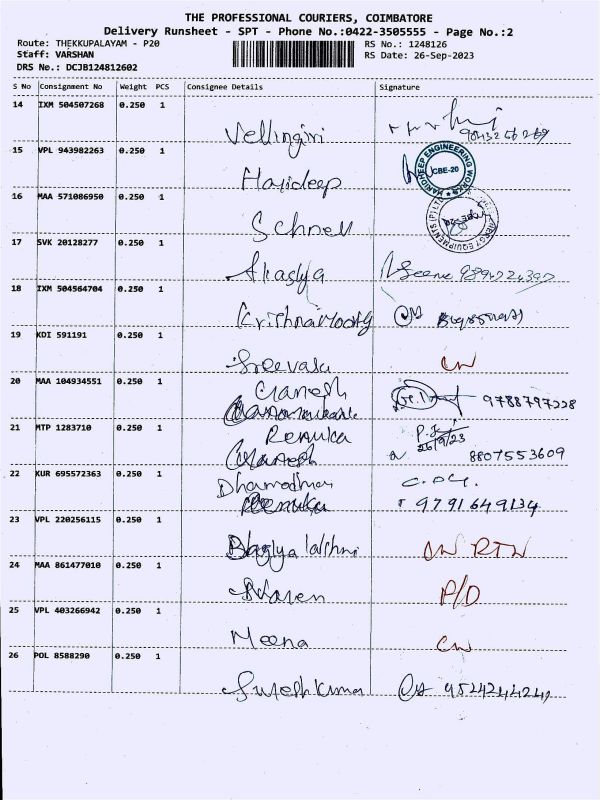 THE PROFESSIONAL COURIERS, COIMBATORE
Delivery Runsheet - SPT - Phone No.:0422-3505555 - Page No.:2
Route: THEKKUPALAYAM - P20
RS No.: 1248126
Staff: VARSHAN
RS Date: 26-Sep-2023
DRS No.: DCJB124812602
S No Consignment No Weight PCS Consignee Details Signature
14 IXM 504507268 0.250 1
Vellingiri
15 VPL 943982263 0.250 1
Harideep
HARIDHEEP ENGINEERING WORKS
CBE-20
16 MAA 571086950 0.250 1
Schnell
EQUIPMENTS (P) LTD
17 SVK 20128277 0.250 1
18 IXM 504564704 0.250 1
Krishnamoorthy
19 KDI 591191 0.250 1
20 MAA 104934551 0.250 1
Ganesh
9788797228
21 MTP 1283710 0.250 1
Renuka
26/9/23
Ganesh
8807553609
22 KUR 695572363 0.250 1
Renuka
9791649134
23 VPL 220256115 0.250 1
Bhagya lakshmi
24 MAA 861477010 0.250 1
P/D
25 VPL 403266942 0.250 1
Meena
26 POL 8588290 0.250 1
Suresh Kumar